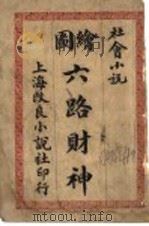 社會小説
繪圖
六路財神
上海改良小說社印行